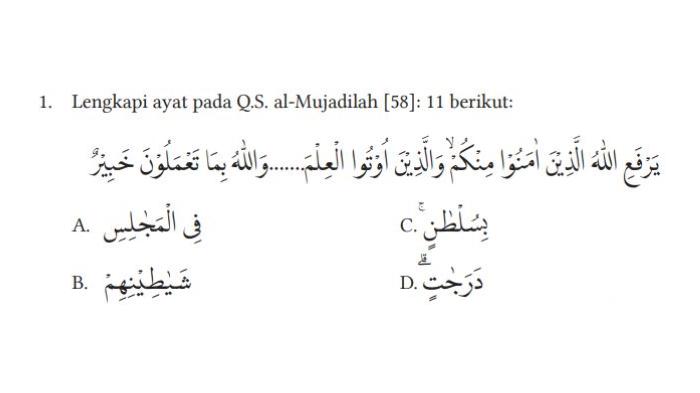 1. Lengkapi ayat pada Q.S. al-Mujadilah [58]: 11 berikut:
يَرْفَعِ اللّٰهُ الَّذِيْنَ اٰمَنُوْا مِنْكُمْۙ وَالَّذِيْنَ اُوْتُوا الْعِلْمَ.......وَاللّٰهُ بِمَا تَعْمَلُوْنَ خَبِيْرٌ
A. فِى الْمَجٰلِسِ C. بِسُلْطٰنٍۚ
B. شَيٰطِيْنِهِمْ D. دَرَجٰتٍۗ